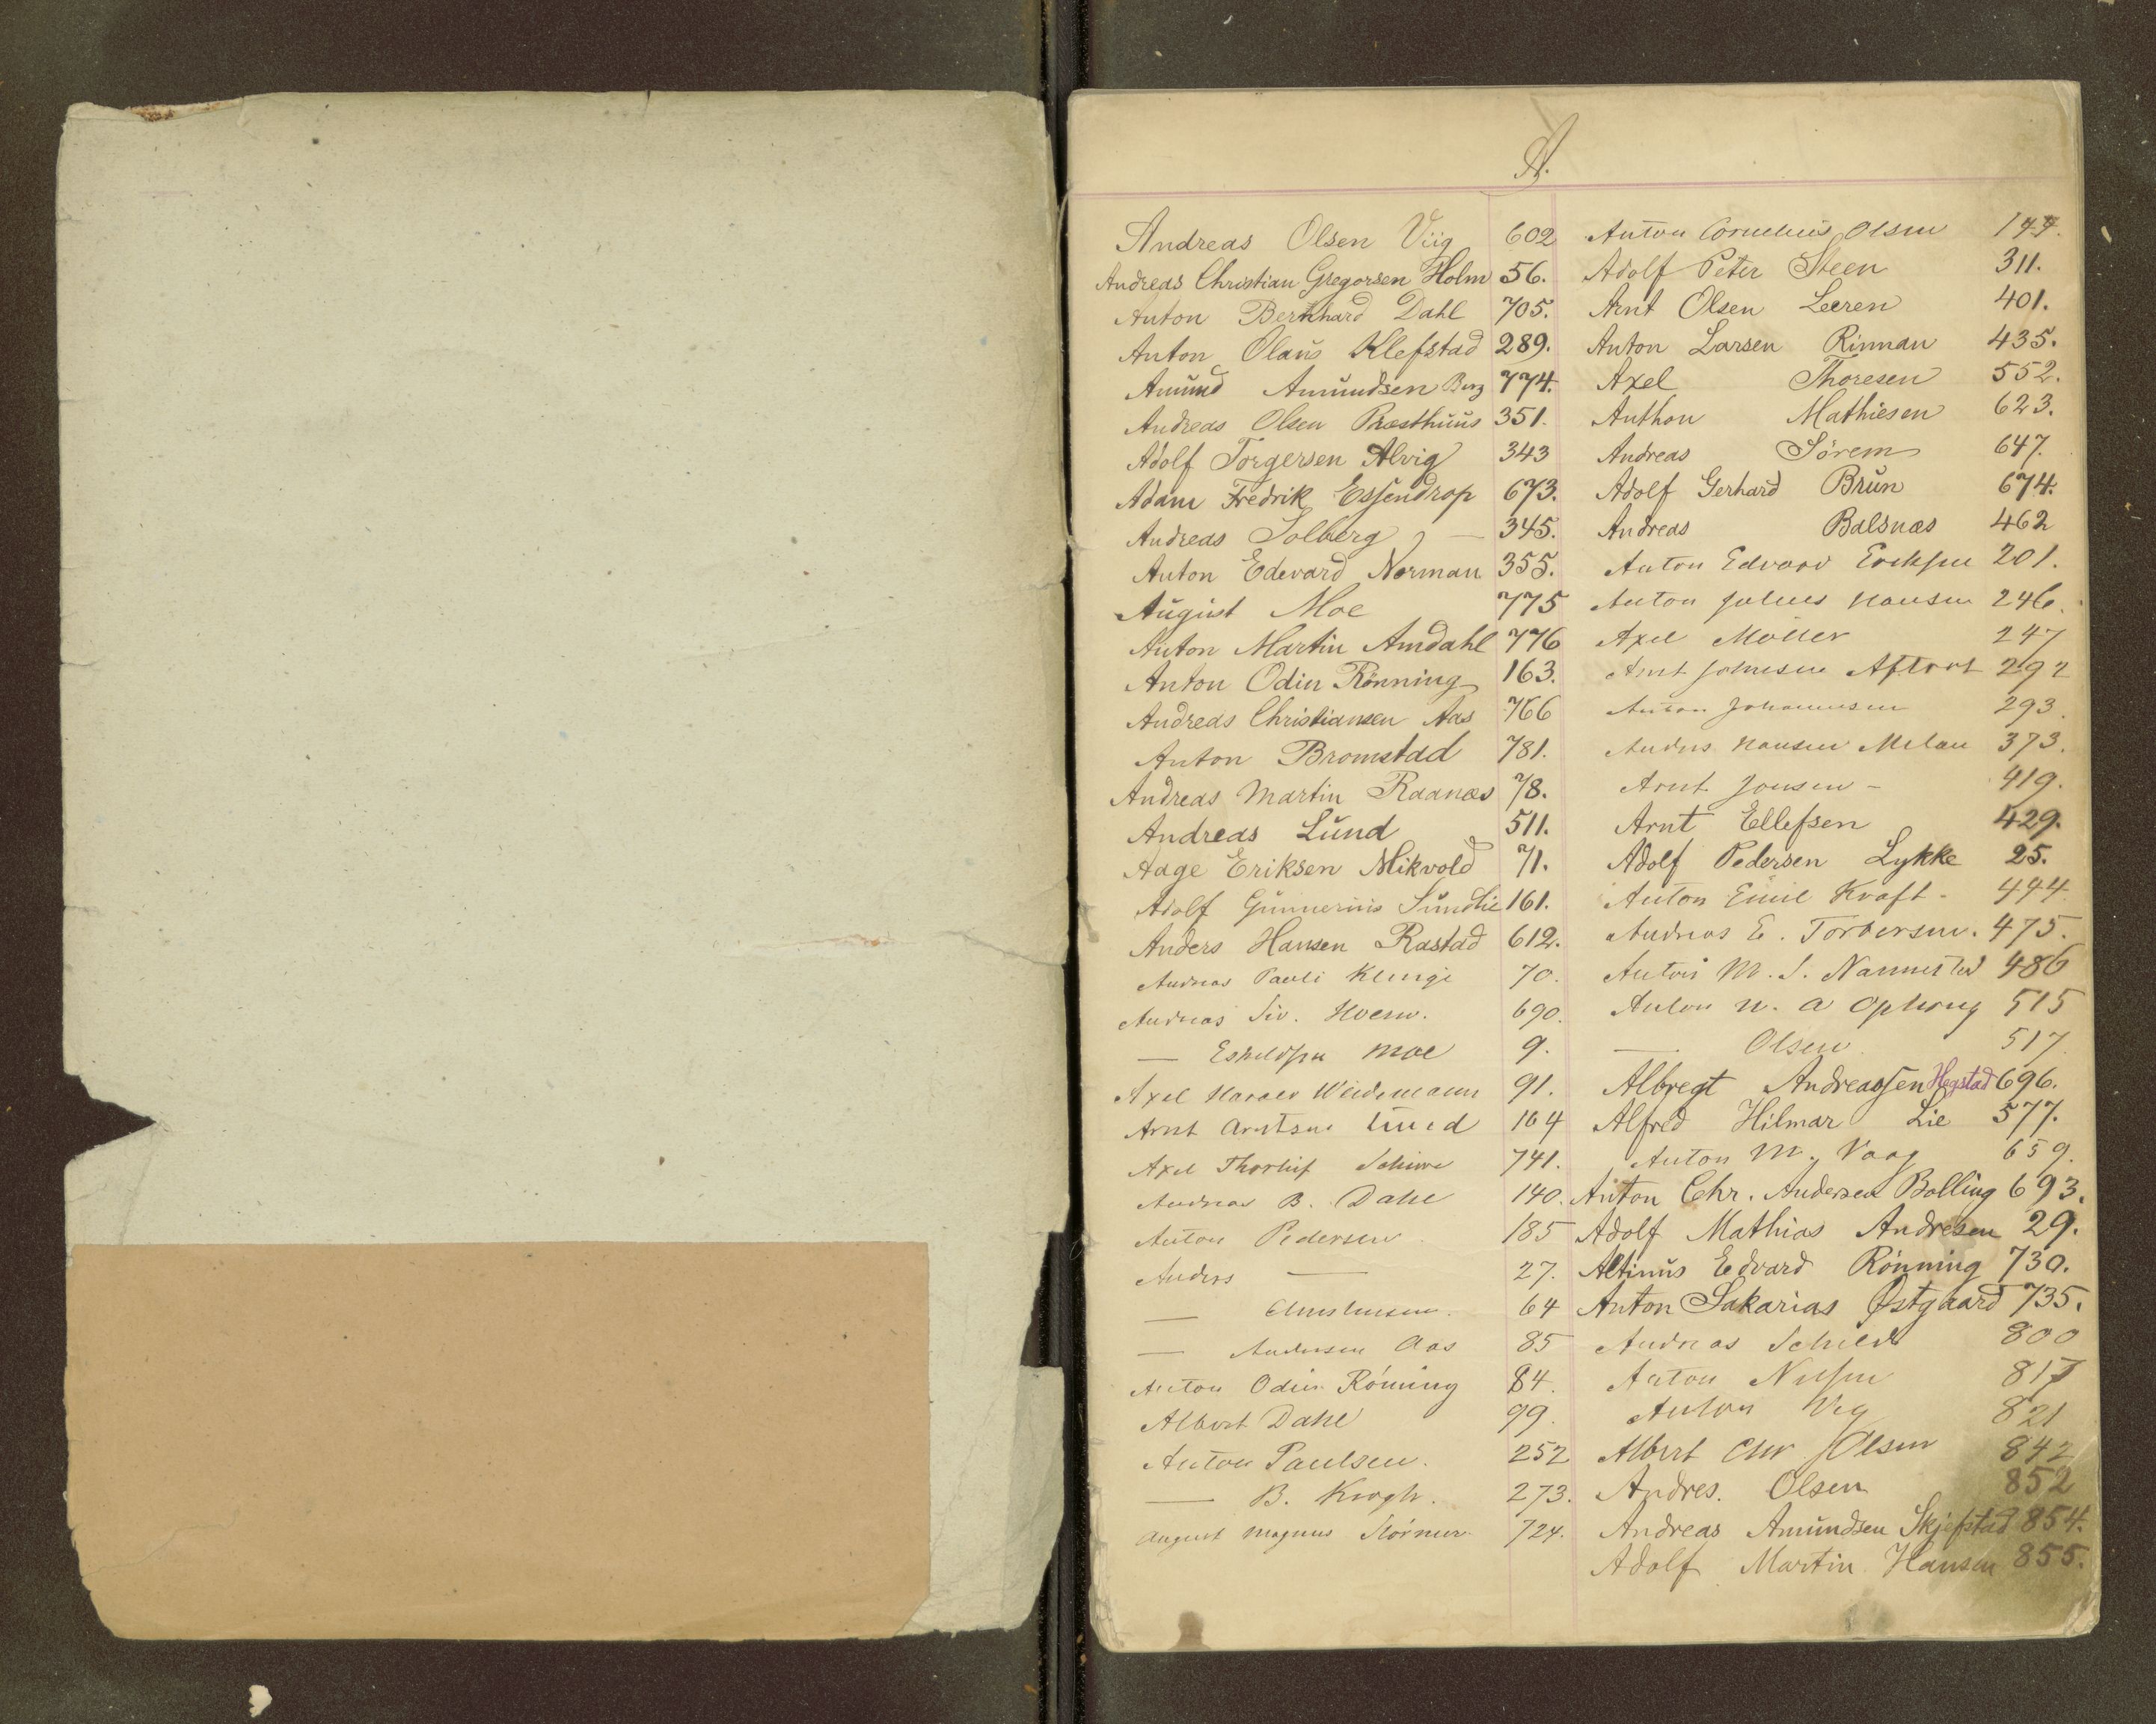 A.
Andreas Olsen Viig 602
Andreas Christian Gregorsen Holm 56.
Anton Bernhard Dahl 705.
Anton Olaus Klefstad 289.
Amund Amundsen Berg 774.
Andreas Olsen Præsthuus 351.
Adolf Torgersen Alvig 343
Adam Fredrik Essendrop 673.
Andreas Solberg — 345.
Anton Edevard Norman 355.
August Moe 775
Anton Martin Amdahl 776
Anton Odin Rönning 163.
Andreas Christiansen Aas 766
Anton Bromstad 781.
Andreas Martin Raanæs 78.
Andreas Lund 511.
Aage Eriksen Mikvold 71.
Adolf Gunnerius Sundlie 161.
Anders Hansen Rastad 612.
Andreas Pauli Klinge 70.
Andreas Siv. Hoem. 690.
— Eskildsen Moe 9.
Axel Harald Weidemann 91.
Arnt Arntsen Lund 104
Axel Thorleif Schive 741.
Andreas B. Dahl 140.
Anton Pedersen 185
Anders — 27.
— Christensen. 64
— Andersen Aas 85
Anton Odin Röning 84.
Albert Dahl 99.
Anton Paulsen. 252
— B. Krogh. 273.
August Magnus Störmer 724.
Anton Cornelius Olsen 144.
Adolf Peter Steen 311.
Arnt Olsen Leeren 401.
Anton Larsen Rinnan 435.
Axel Thoresen 552.
Anthon Mathiesen 623.
Andreas Sörem 647.
Adolf Gerhard Brun 674.
Andreas Balsnæs 462
Anton Edvard Eriksen 201.
Anton Julius Hansen 246.
Axel Möller 247
Arnt Johnsen 292
Anton Johannesen 293.
Anders Hansen Melan 373.
Arnt Jonsen - 419.
Arnt Ellefsen 429.
Adolf Pedersen Lykke 25.
Anton Emil Kraft - 444
Andreas E. Torbersen. 475.
Anton M. S. 486
Anton N. A Ophoug 515
— Olsen 517.
Albregt Andreassen Hegstad 696.
Alfred Hilmar Lie 577.
Anton M. Vaag 659.
Anton Chr. Andersen Bolling 693.
Adolf Mathias Andresen 29.
Altinus Edvard Rönning 730.
Anton Sakarias Østgaard 735.
Andreas Scheldt 800
Anton Nilsen 817
Anton Vig 821
Albert Chr Olsen 842
Andres. Olsen 852
Andreas Amundsen Skjefstad 854.
Adolf Martin Hansen 855.